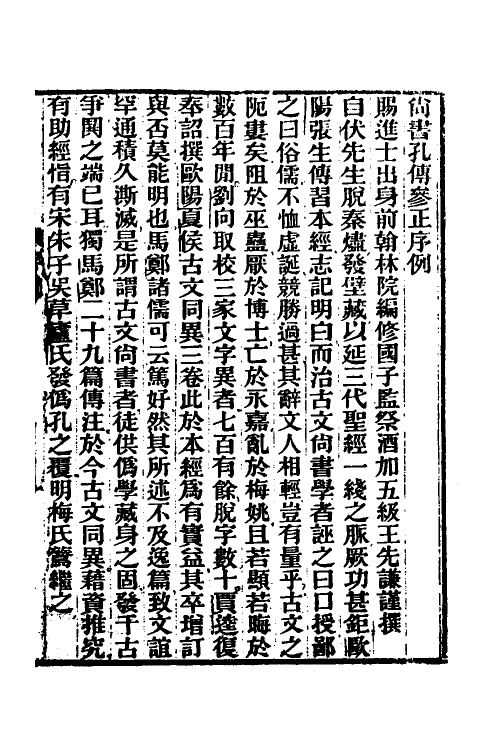 尙書孔傳參正序例
賜進士出身前翰林院編修國子監祭酒加五級王先謙謹撰
自伏先生脫秦燼發壁藏以延三代聖經一綫之脈厥功甚鉅歐
陽張生傳習本經志記明白而治古文尙書學者誣之曰口授鄙
之曰俗儒不恤虛誕競勝過甚其辭文人相輕豈有量乎古文之
阨婁矣阻於巫蠱厭於博士亡於永嘉亂於梅姚且若顯若晦於
數百年閒劉向取校三家文字異者七百有餘脫字數十賈逵復
奉詔撰歐陽夏侯古文同異三卷此於本經爲有實益其卒增訂
與否莫能明也馬鄭諸儒可云篤好然其所述不及逸篇致文誼
罕通積久澌滅是所謂古文尙書者徒供僞學藏身之固發千古
爭鬨之端已耳獨馬鄭二十九篇傳注於今古文同異藉資推究
有助經悟有宋朱子吳草廬氏發僞孔之覆明梅氏鷟繼之